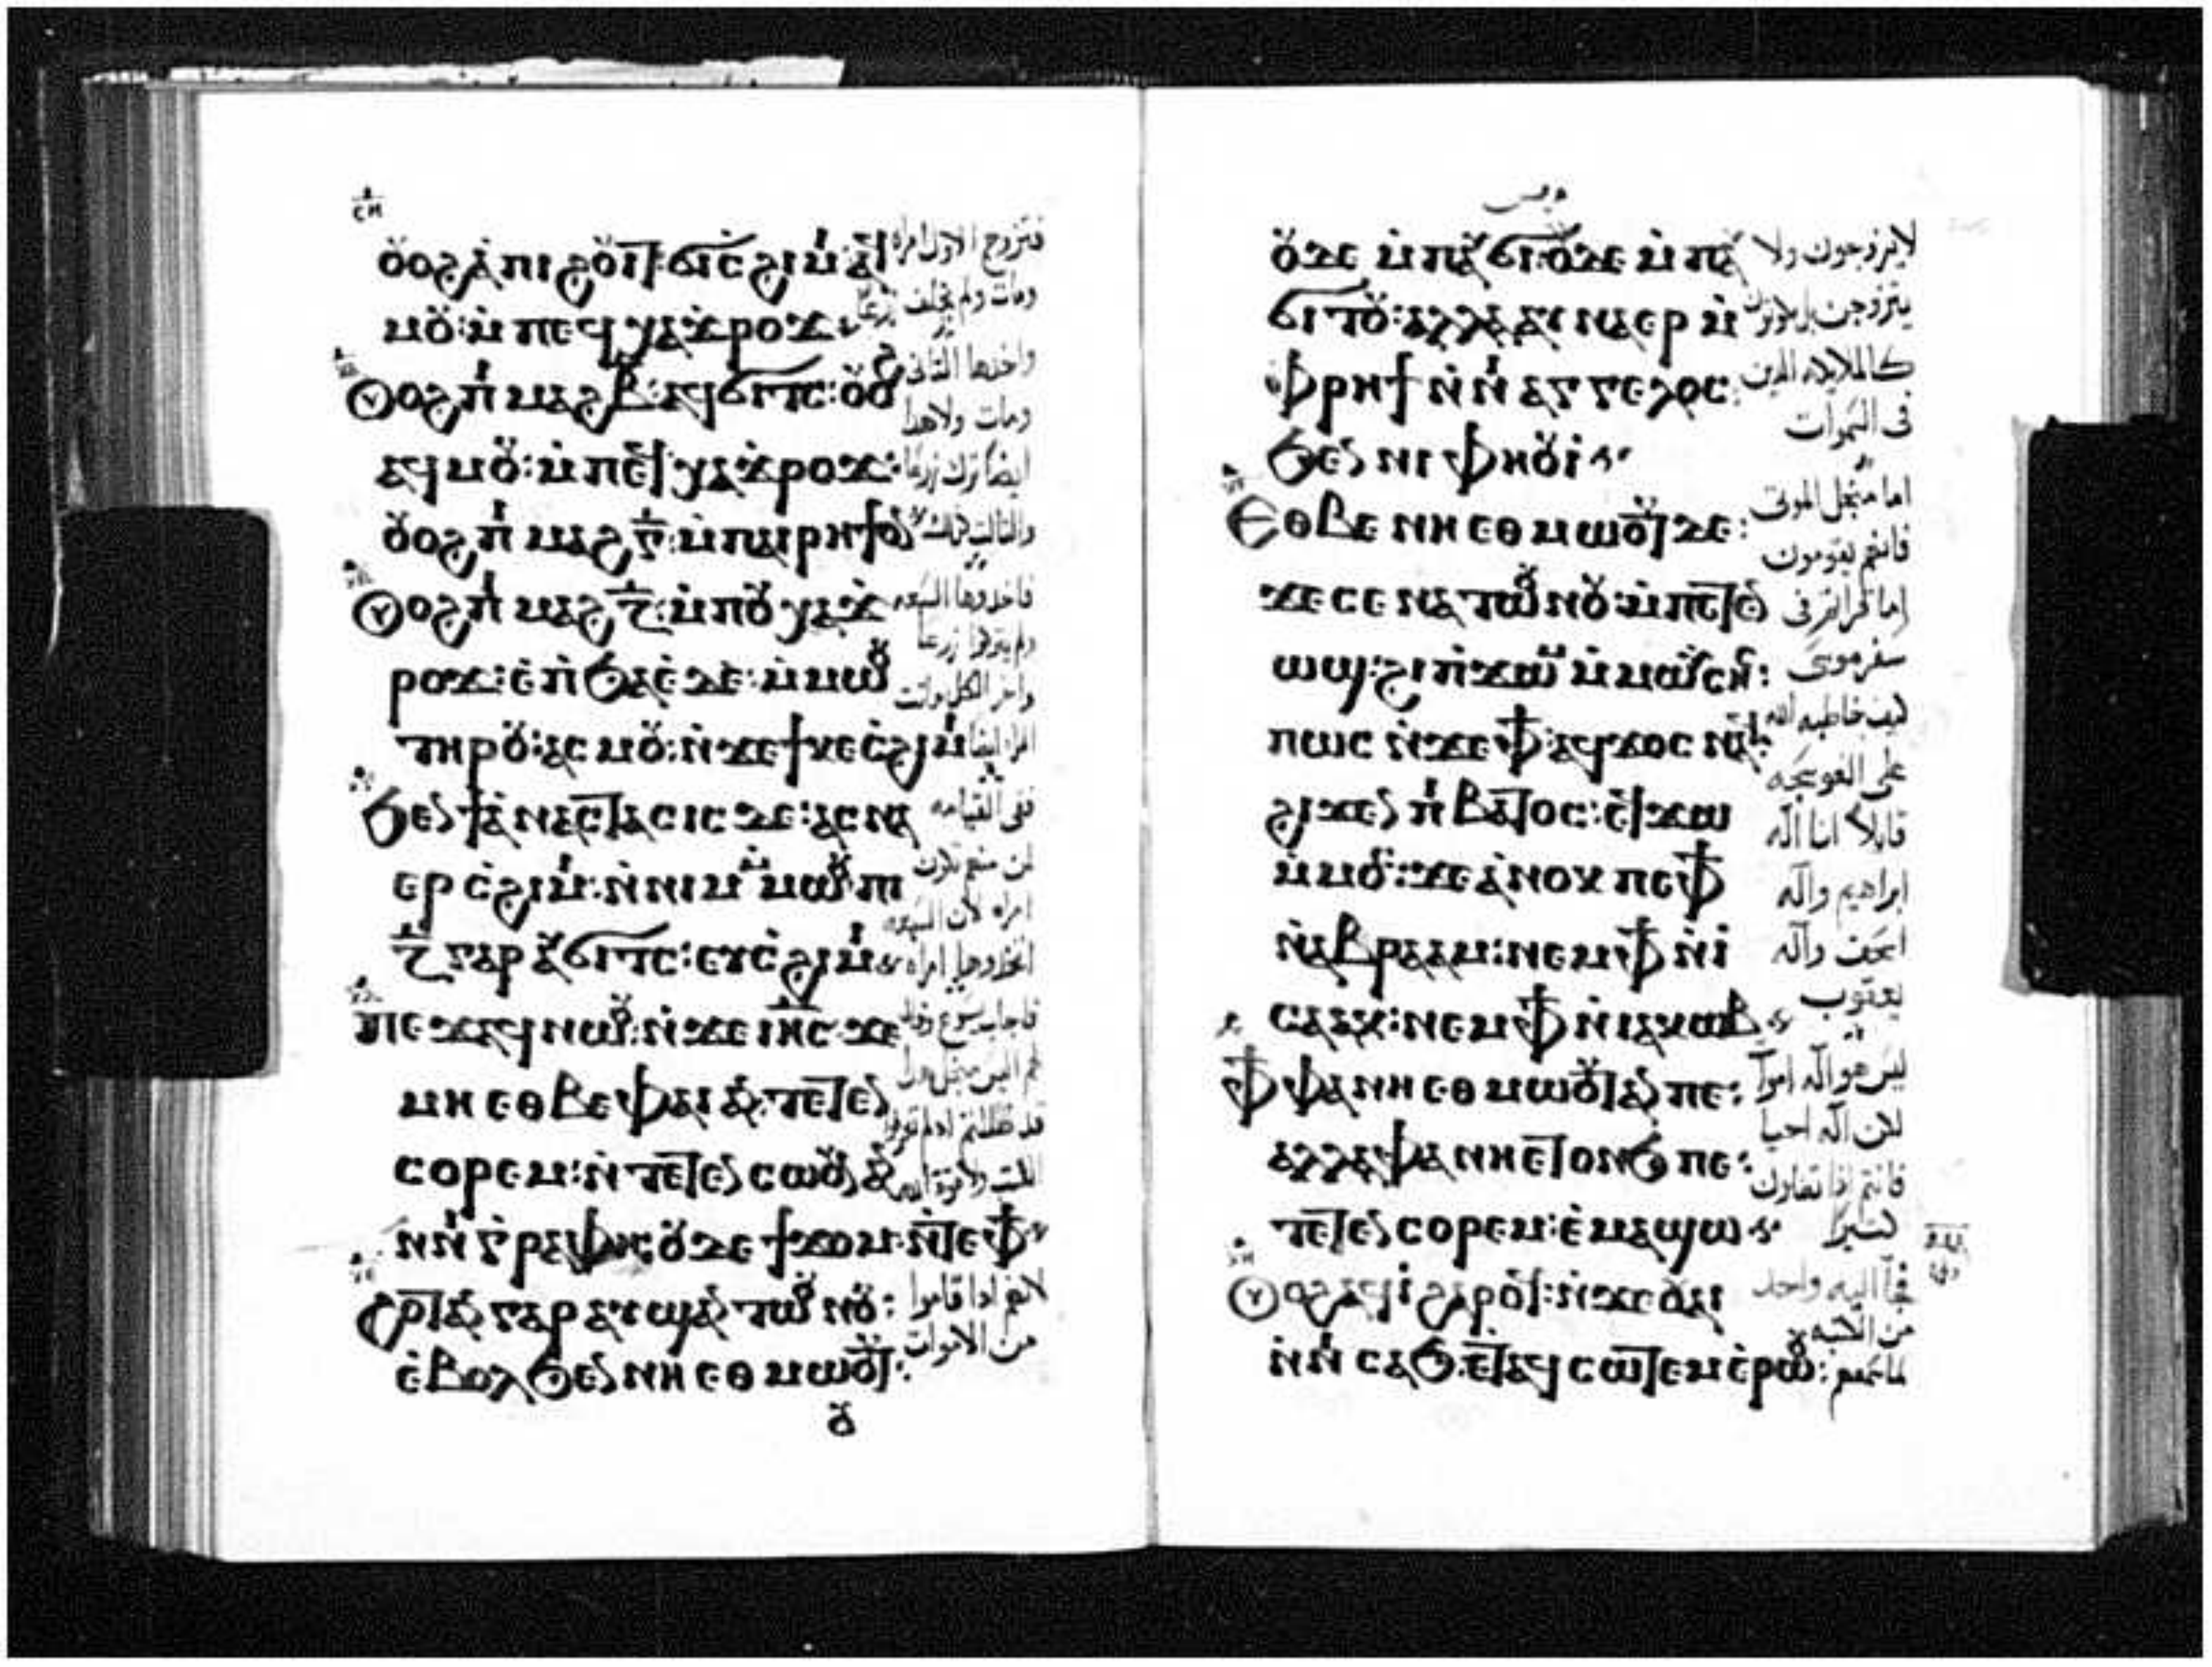 ⲥⲏ
ⲟⲩⲟϩ ⲁ ⲡⲓϩⲟⲩⲓⲧ ϭⲓ ⲥϩⲓⲙⲓ ⲁϥ
ⲙⲟⲩ: ⲙ̀ⲡⲉϥⲭⲁ ϫⲣⲟϫ
ⲟⲩⲟϩ ⲡⲓⲙⲁϩⲃ̅: ⲁϥϭⲓⲧⲥ: ⲟⲩⲟϩ
ⲁϥⲙⲟⲩ: ⲙ̀ⲡⲉϥⲭⲁ ϫⲣⲟϫ:
ⲟⲩⲟϩ ⲡⲓⲙⲁϩⲅ̅: ⲙ̀ⲡⲁⲓⲣⲏϯ ⲟⲛ
ⲟⲩⲟϩ ⲡⲓⲙⲁϩⲍ̅: ⲙ̀ⲡⲟⲩⲭⲁ ϫ
ⲣⲟϫ: ⲉ̀ⲡϧⲁⲉ̀ ⲇⲉ: ⲙ̀ⲙⲱⲟⲩ
ⲧⲏⲣⲟⲩ: ⲁⲥⲙⲟⲩ: ⲛ̀ϫⲉϯⲕⲉⲥ̀ϩⲓⲙⲓ
ϧⲉⲛ ϯⲁⲛⲁⲥⲧⲁⲥⲓⲥ ⲇⲉ: ⲁⲥⲛⲁ
ⲉⲣ ⲥ̀ϩⲓⲙⲓ: ⲛ̀ⲛⲓⲙ ⲙ̀ⲙⲱⲟⲩ ⲡⲓ
ⲍ̅ ⲅⲁⲣ ⲁⲩϭⲓⲧⲥ: ⲉⲩⲥ̀ϩⲓⲙⲓ
ⲡⲉϫⲁϥ ⲛⲱⲟⲩ: ⲛ̀ϫⲉ ⲓⲏ̅ⲥ̅ ϫⲉ
ⲙⲏ ⲉⲑⲃⲉ ⲫⲁⲓ ⲁⲛ: ⲧⲉⲧⲉⲛ
ⲥⲟⲣⲉⲙ: ⲛ̀ⲧⲉⲧⲉⲛⲥⲱⲟⲩⲛ ⲁⲛ
ⲛ̀ⲛⲓⲅ̀ⲣⲁⲫⲏ: ⲟⲩⲇⲉ ϯϫⲟⲙ ⲛ̀ⲧⲉ ⲫϯ
ϩⲟⲧⲁⲛ ⲅⲁⲣ ⲁⲩϣⲁⲛⲧⲱⲟⲩⲛⲟⲩ:
ⲉ̀ⲃⲟⲗϧⲉⲛ ⲛⲏⲉⲑⲙⲱⲟⲩⲧ:
ⲟⲩ
فتزوج الاول امراه
ومات ولم يخلف زرعا
واخذها الثانى
ومات ولاهدا
ايضا ترك زرعا
فاخدوها السبعه
ولم يتركوا زرعا
واخر الكل ماتت
ففى القيامه
لمن منهم تكون
امراه لان السبعه
اتخذوها امراه
لانهم اذا قاموا
من الاموات
ⲟⲩⲇⲉ ⲙ̀ⲡⲁⲩϭⲓ: ⲟⲩⲇⲉ ⲙ̀ⲡⲁⲩ
ϭⲓⲧⲟⲩ: ⲁⲗⲗⲁ ⲁⲩⲛⲁⲉⲣ ⲙ̀
ⲫⲣⲏϯ ⲛ̀ⲛⲓⲁⲅⲅⲉⲗⲟⲥ:
ϧⲉⲛ ⲛⲓⲫⲏⲟⲩⲓ̀
ⲉⲑⲃⲉ ⲛⲏⲉⲑⲙⲱⲟⲩⲧ ⲇⲉ:
ϫⲉ ⲥⲉⲛⲁⲧⲱⲟⲩⲛⲟⲩ: ⲙ̀ⲡⲉⲧⲉⲛ
ⲱϣ: ϩⲓ ⲡ̀ϫⲱⲙ ⲙ̀ⲙⲱⲩⲥⲏⲥ:
ⲡⲱⲥ ⲛ̀ϫⲉ ⲫϯ ⲁϥϫⲟⲥ ⲛⲁϥ:
ϩⲓϫⲉⲛ ⲡⲓⲃⲁⲧⲟⲥ: ⲉϥϫⲱ
ⲙ̀ⲙⲟⲥ: ϫⲉ ⲁ̀ⲛⲟⲕ ⲡⲉ ⲫϯ
ⲛ̀ⲁⲃⲣⲁⲁⲙ: ⲛⲉⲙ ⲫϯ ⲛ̀ⲓ̀
ⲥⲁⲁⲕ: ⲛⲉⲙ ⲫϯ ⲛ̀ⲓⲁⲕⲱⲃ
ⲫϯ ⲫⲁ ⲛⲏⲉⲑⲙⲱⲟⲩⲧ ⲁⲛ ⲡⲉ:
ⲁⲗⲗⲁ ⲫⲁ ⲛⲏⲉⲧⲟⲛϧ ⲡⲉ:
ⲧⲉⲧⲉⲛⲥⲟⲣⲉⲙ: ⲉ̀ⲙⲁϣⲱ
ⲟⲩⲟϩ ⲁϥⲓ̀ ϩⲁⲣⲟϥ: ⲛ̀ϫⲉ ⲟⲩⲁⲓ
ⲛ̀ⲛⲓⲥⲁϧ: ⲉⲧⲁϥⲥⲱⲧⲉⲙ ⲉ̀ⲣⲱⲟⲩ:
لا يتزوجون ولا
كالملايكه الدين
فى السموات
اما من اجل الموتى
فانهم يقومون
اما قراتم فى
سفر موسى
كيف خاطبه الله
على العوسجه
قايلا انا اله
ابراهيم واله
اسحق واله
يعقوب
ليس هو اله اموات
لكن اله احيا
فانتم اذا تضلون
كتيرا
فجا اليه واحد
من الكتبه
لما سمعهم